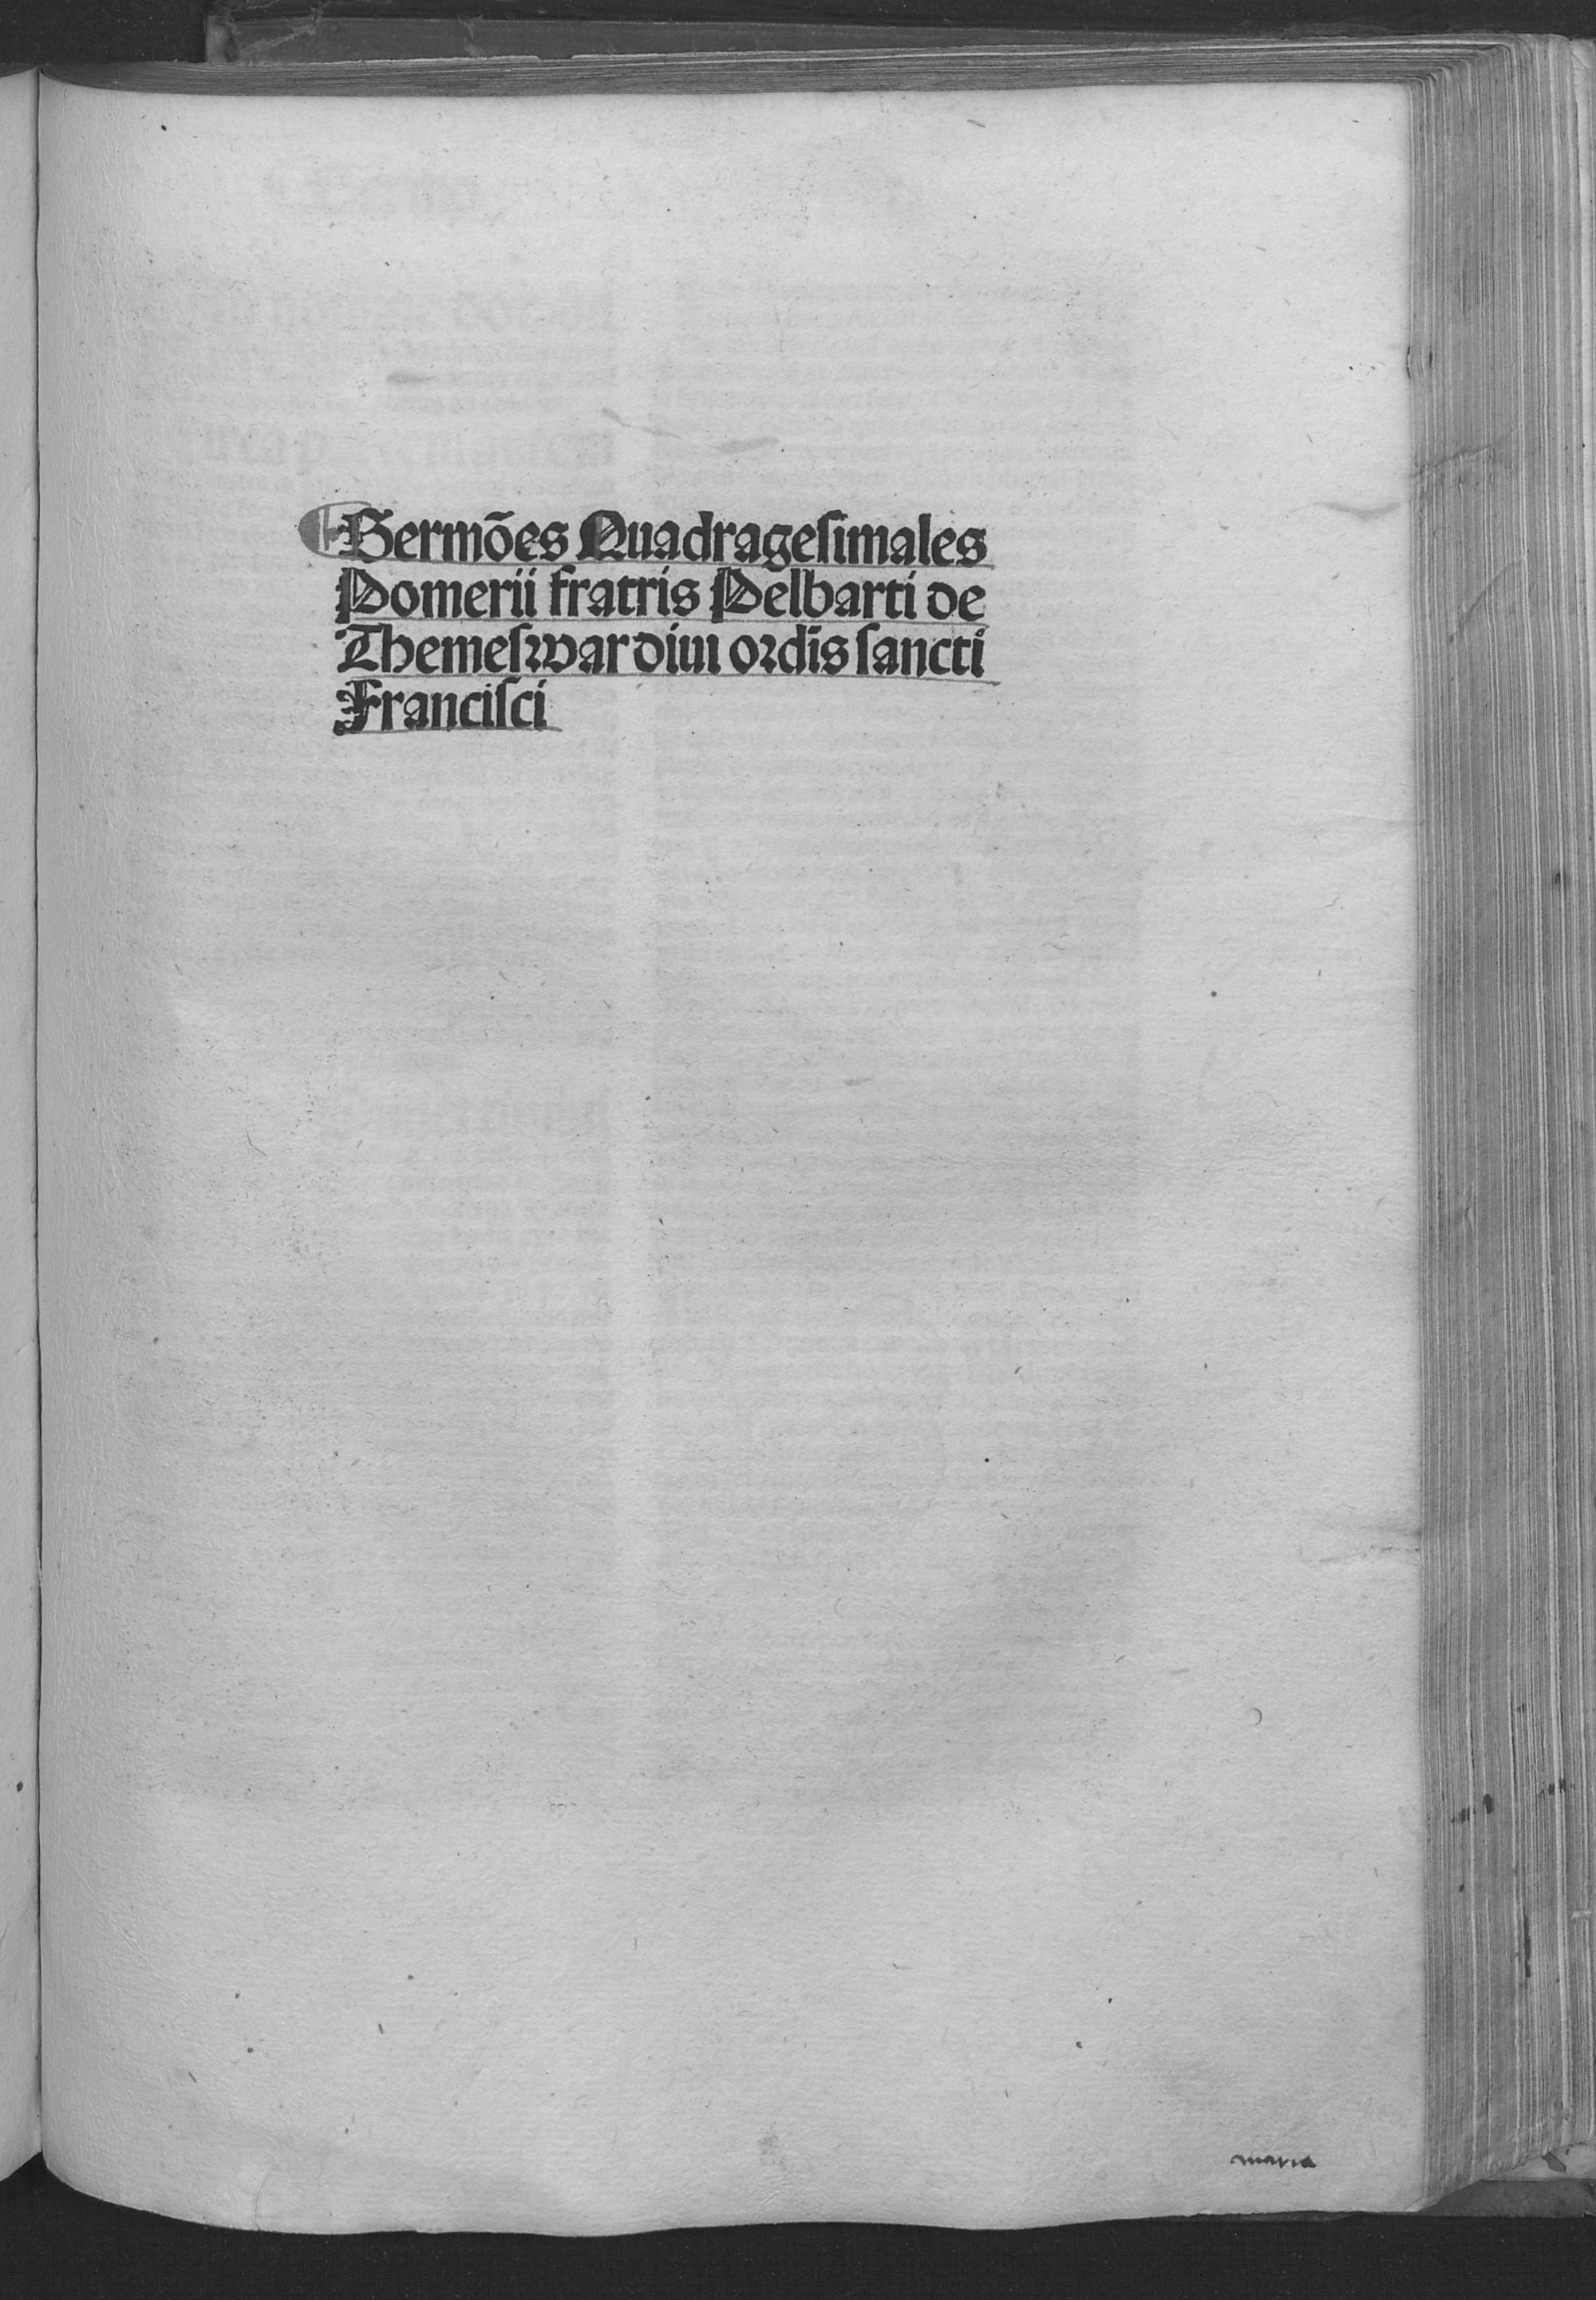 Sermões Quadrageſimales
Pomerii fratris Pelbarti de
Themeſwar diui ordis ſancti
Franciſci
maria